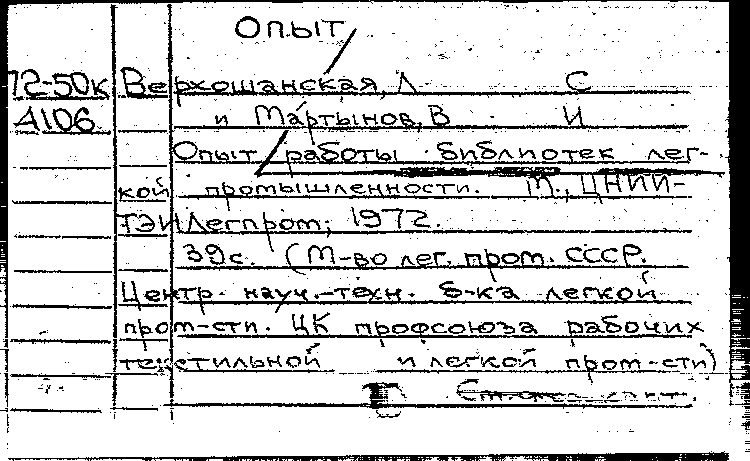 Опыт/
72-50к Верхошанская, Л С
А106 и Мартынов, В И
Опыт/работы библиотек лег-
кой промышленности. М., ЦНИИ-
ТЭИЛегпром, 1972.
39с. (М-во лег. пром. СССР.
Центр. науч.-техн. б-ка легкой
пром-сти. ЦК профсоюза рабочих
текстильной и легкой пром-сти)